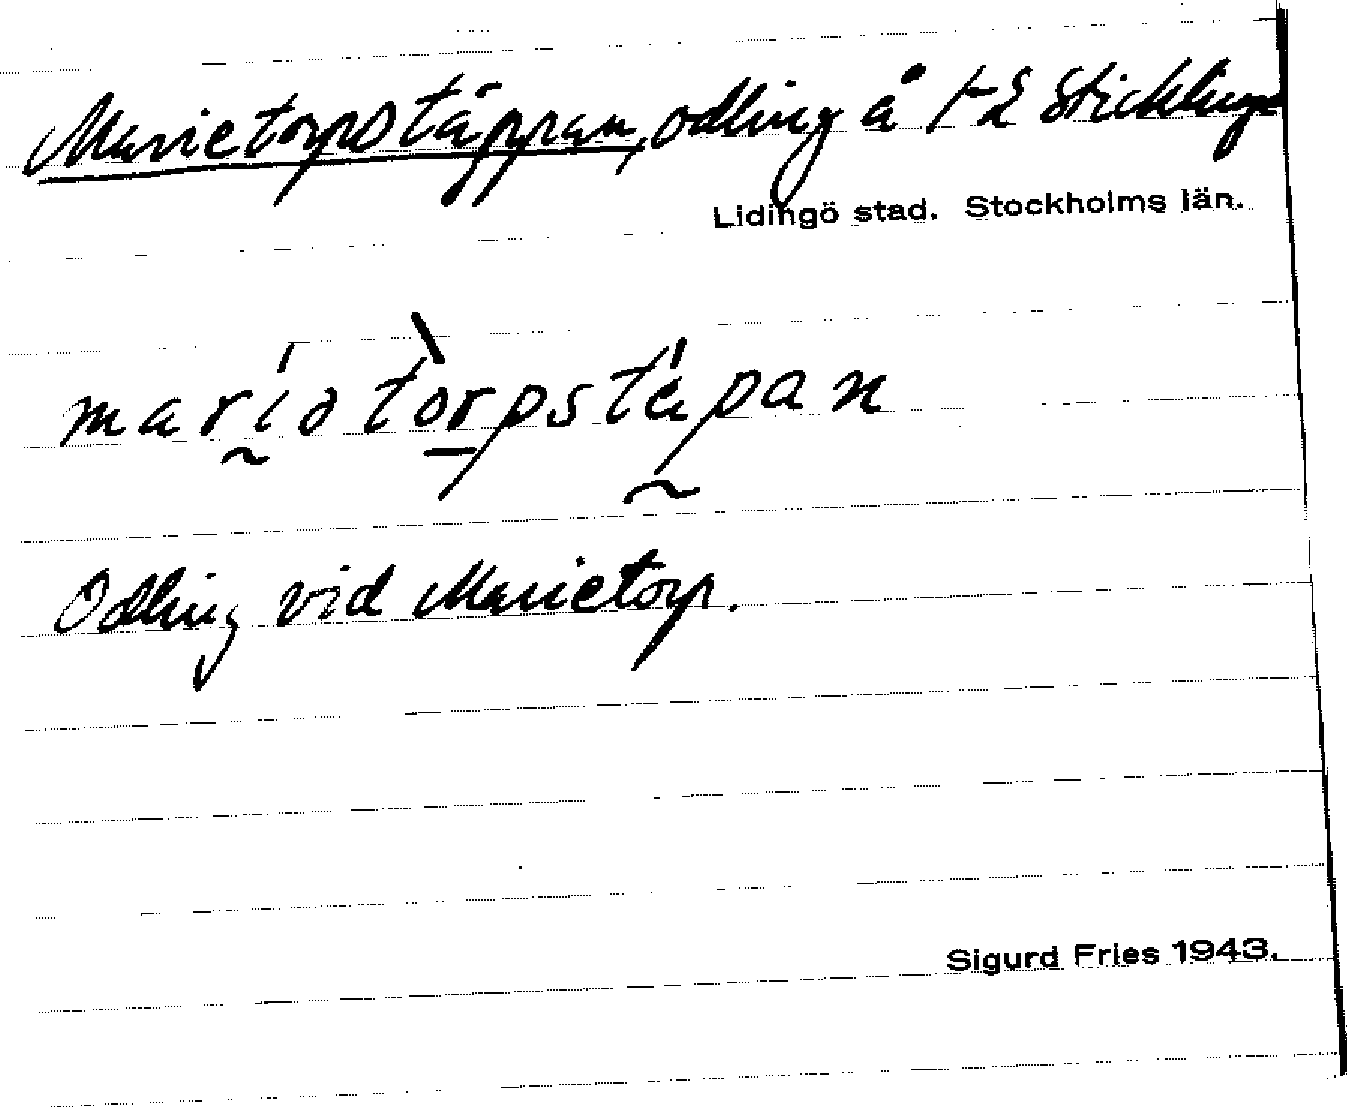 Marietorpstäppan, odling å 1-2 Sticklinge
Lidingö stad. Stockholms län.
Odling vid Marietorp.
Sigurd Fries 1943.